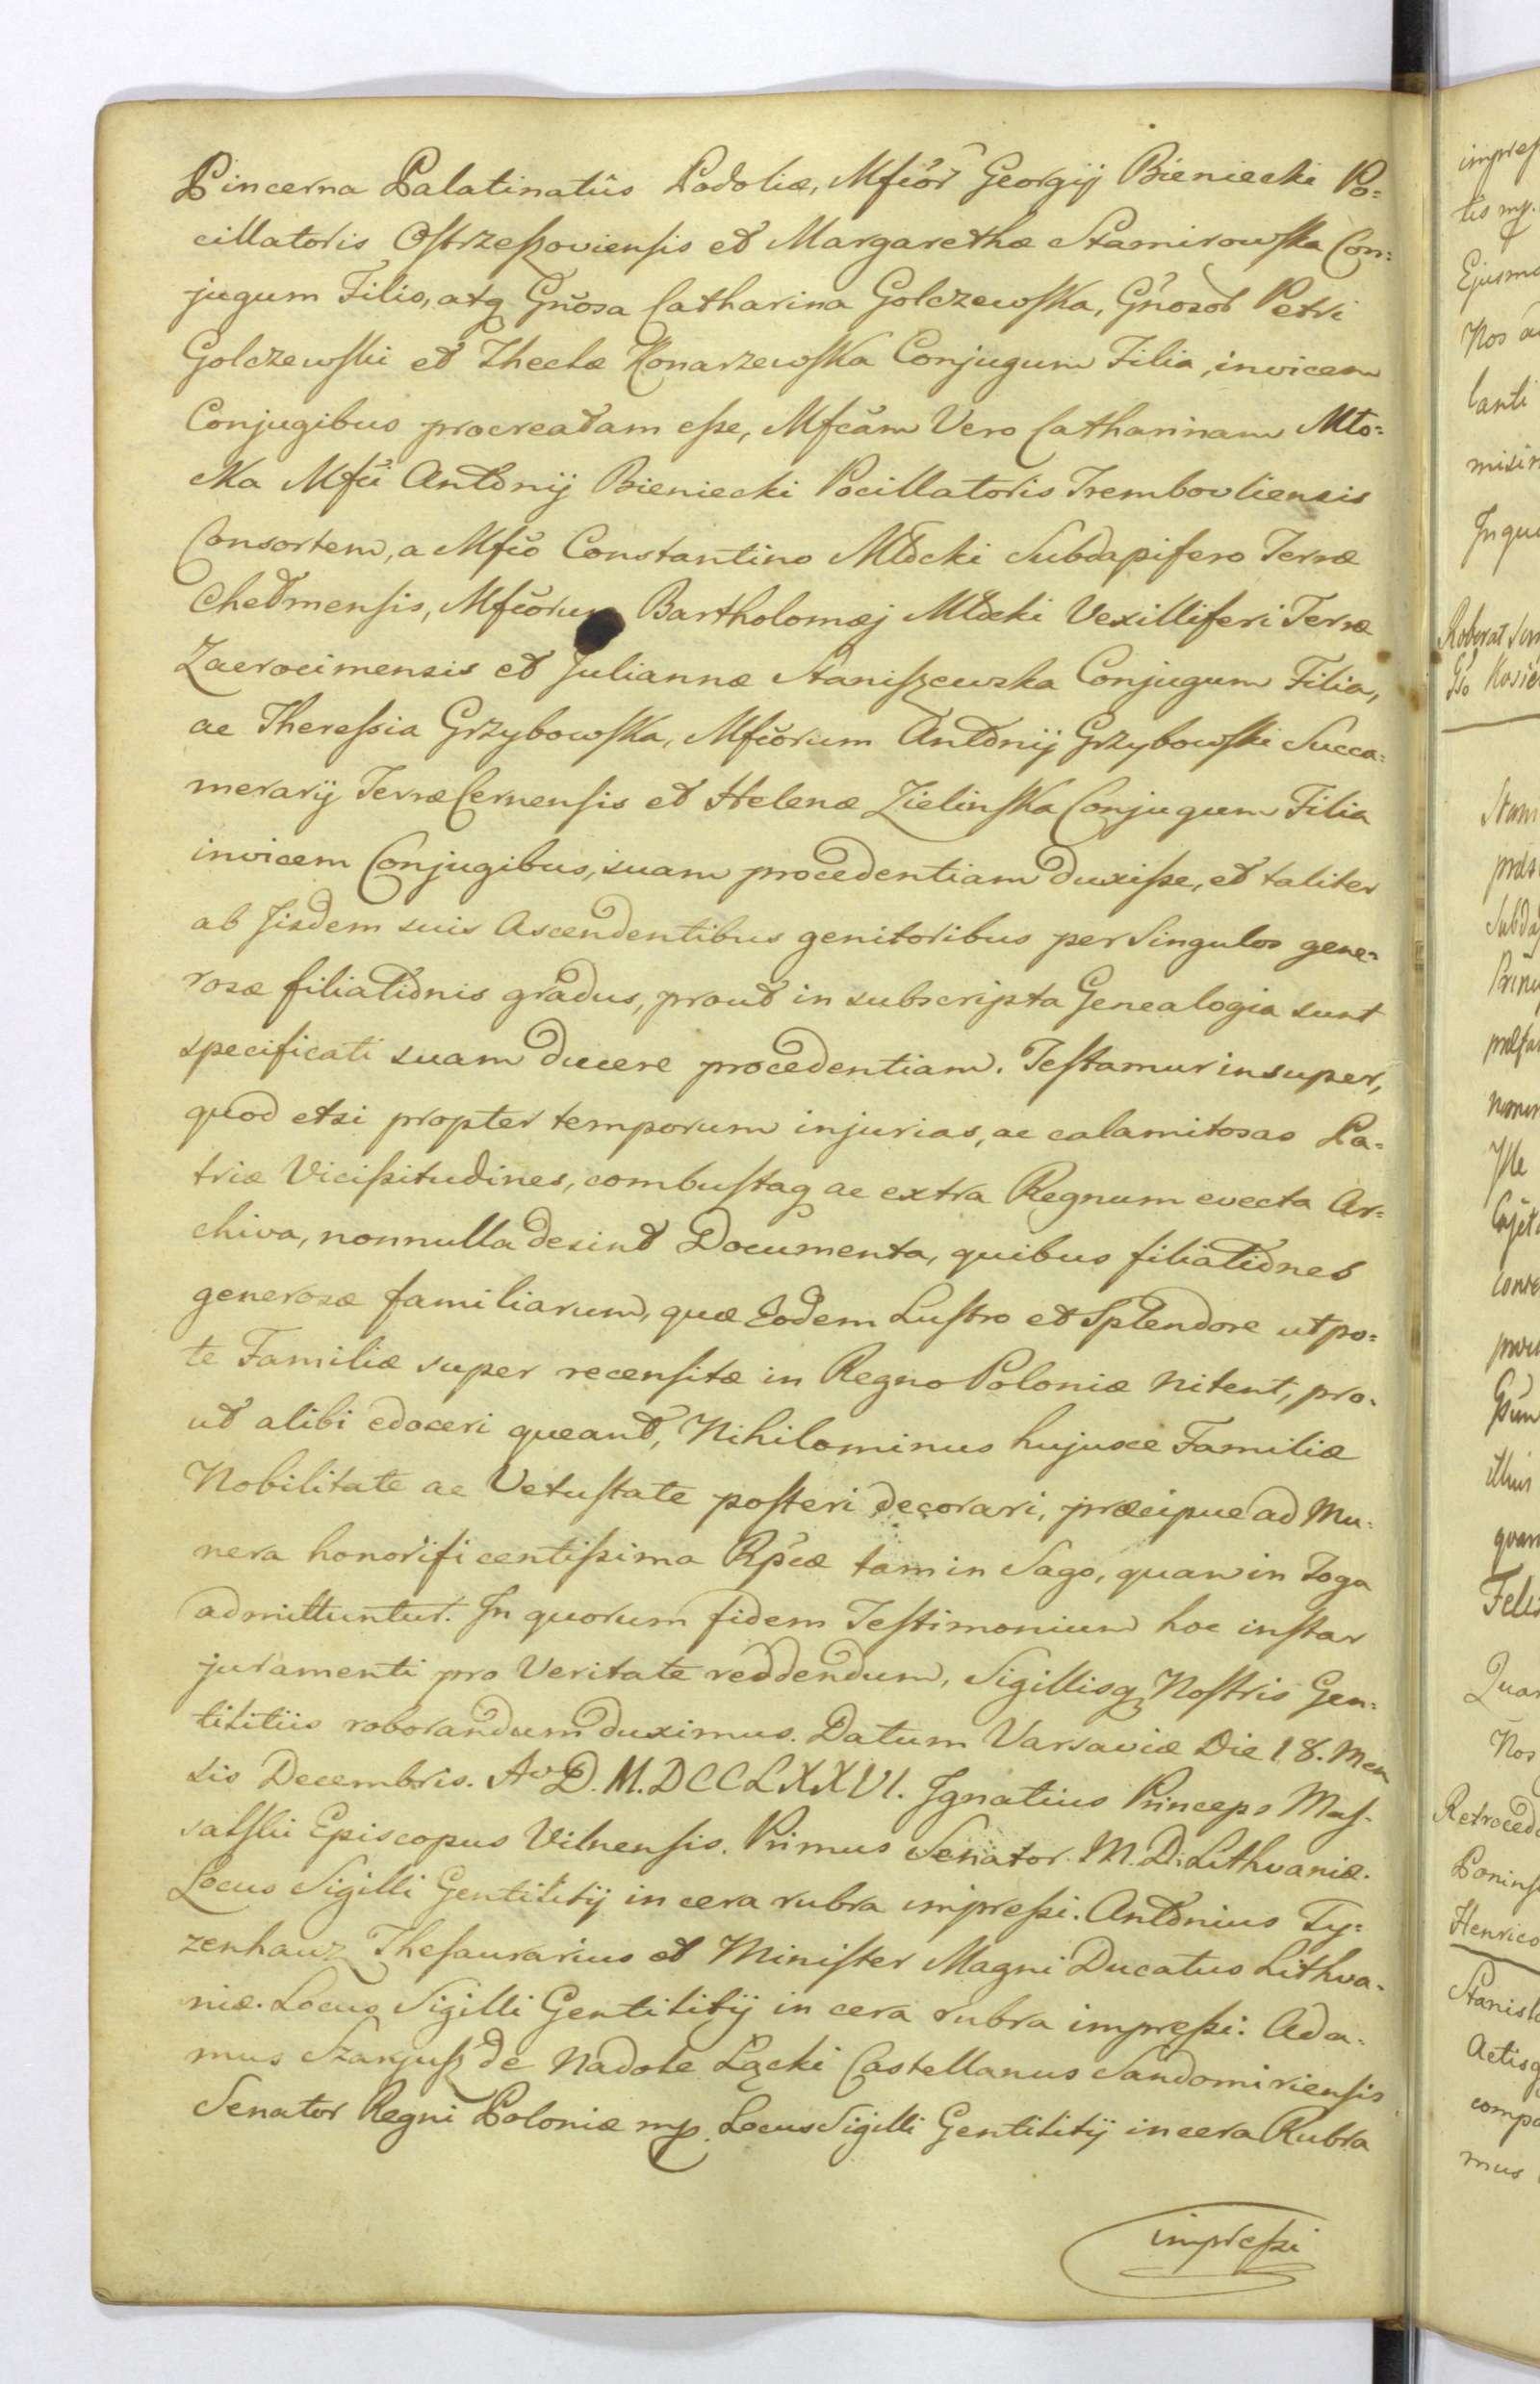 Pincerna Palatinatûs Podoliæ, Mfcōr Georgij Bieniecki Po=
cillatoris Ostrzeszoviensis et Margarethæ Stamirowska Con=
jugum Filio, atq Gnosa Catharina Golczewska, Gnosor Petri
Golczewski et Theclæ Konarzewska Conjugum Filia, invicem
Conjugibus procreatam esse, Mfcam Vero Catharinam Mło=
cka Mfci Antonij Bieniecki Pocillatoris Trembovliensis
Consortem, a Mfco Constantino Młocki Subdapifero Terræ
Chełmensis, Mfcorum Bartholomæj Młocki Vexilliferi Terræ
Zacrocimensis et Juliannæ Staniszewska Conjugum Filio,
ac Theressia Grzybowska, Mfcorum Antonij Grzybowski Succa=
merarij Terræ Cernensis et Helenæ Zielinska Conjugum Filia
invicem Conjugibus, suam procedentiam duxisse, et taliter
ab Jisdem suis Ascendentibus genitoribus per Singulos gene=
rosæ filiationis gradus, prout in subscripta Genealogia sunt
specificati suam ducere procedentiam. Testamur insuper,
quod etsi propter temporum injurias, ac calamitosas Pa=
triæ Vicissitudines, combustaq ac extra Regnum evecta Ar=
chiva, nonnulla desint Documenta, quibus filiationes
generosæ familiarum, quæ Eodem Lustro et Splendore utpo=
te Familiæ super recensitæ in Regno Poloniæ nitent, pro=
ut alibi edoceri queant, Nihilominus hujusce Familiæ
Nobilitate ac Vetustate posteri decorari, præcipue ad Mu=
nera honorificentissima Rpcæ tam in Sago, quam in Toga
admittuntur. In quorum fidem Testimonium hoc instar
juramenti pro Veritate reddendum, Sigillisq Nostris Gen=
tilitiis roborandum duximus. Datum Varsaviæ Die 18. Men
sis Decembris. Ao D. M.DCCLXXVI. Ignatius Princeps Mas=
salski Episcopus Vilnensis. Primus Senator M. D. Lithvaniæ.
Locus Sigilli Gentilitij in cera rubra impressi. Antonius Ty=
zenhauz Thesaurarius et Minister Magni Ducatus Lithva=
niæ. Locus Sigilli Gentilitij in cera rubra impressi. Ada=
mus Szarjusz de Nadole Łącki Castellanus Sandomiriensis
Senator Regni Poloniæ mp. Locus Sigilli Gentilitij in cera Rubra
impressi